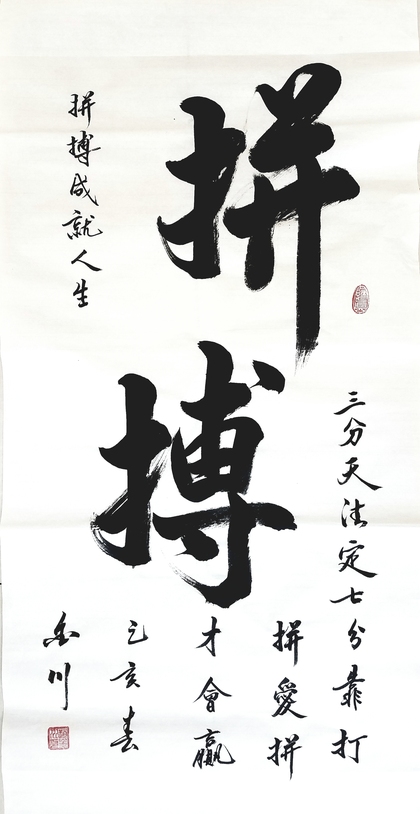 拼搏
三分天注定七分靠打
拼愛拼
才會贏
己亥春
川
拼搏成就人生